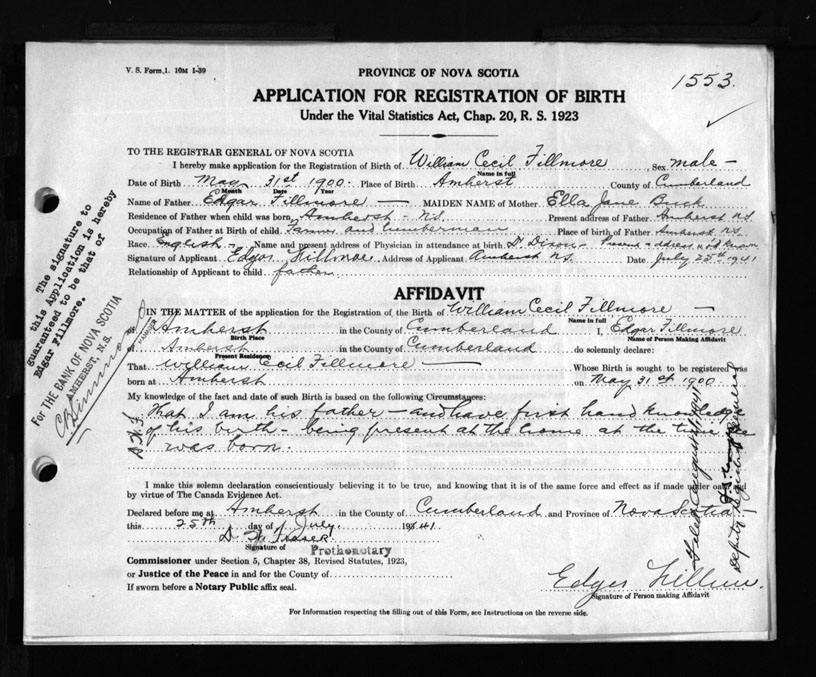 V. S. Form, 1. 10M 1-39
PROVINCE OF NOVA SCOTIA
1553.
APPLICATION FOR REGISTRATION OF BIRTH
Under the Vital Statistics Act, Chap. 20, R. S. 1923
TO THE REGISTRAR GENERAL OF NOVA SCOTIA
I hereby make application for the Registration of Birth of William Cecil Fillmore Sex male -
Name in full
Date of Birth May 31st 1900. Place of Birth Amherst County of Cumberland
Month Date Year
Name of Father Edgar Fillmore - MAIDEN NAME of Mother Ella Jane Buck
Residence of Father when child was born Amherst - NS. Present address of Father Amherst NS.
Occupation of Father at Birth of child Farmer and Lumberman Place of birth of Father Amherst NS.
Race English - Name and present address of Physician in attendance at birth Dr Dixon - Present address not known
Signature of Applicant Edgar Fillmore Address of Applicant Amherst NS. Date July 25th 1941
Relationship of Applicant to child father
The signature to
this Application is hereby
guaranteed to be that of
Edgar Fillmore.
For THE BANK OF NOVA SCOTIA
AMHERST, N.S.
MANAGER
AFFIDAVIT
IN THE MATTER of the application for the Registration of the Birth of William Cecil Fillmore -
Name in full
of Amherst in the County of Cumberland I, Edgar Fillmore
Birth Place Name of Person Making Affidavit
of Amherst in the County of Cumberland do solemnly declare:
Present Residence
That William Cecil Fillmore - Whose Birth is sought to be registered was
born at Amherst on May 31st 1900.
My knowledge of the fact and date of such Birth is based on the following Circumstances:
That I am his father - and have first hand knowledge
of his birth - being present at the home at the time he
was born.
I make this solemn declaration conscientiously believing it to be true, and knowing that it is of the same force and effect as if made under oath and
by virtue of The Canada Evidence Act.
Declared before me at Amherst in the County of Cumberland and Province of Nova Scotia
this 25th day of July. 1941.
D. W. Fraser
Signature of Prothonotary
Commissioner under Section 5, Chapter 38, Revised Statutes, 1923,
or Justice of the Peace in and for the County of
If sworn before a Notary Public affix seal.
Edgar Fillmore.
Signature of Person making Affidavit
For Information respecting the filling out of this Form, see Instructions on the reverse side.
Filed August
Deputy Registrar General